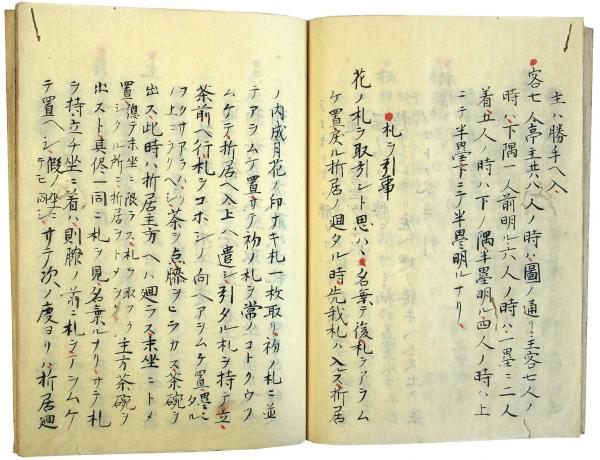 主ハ勝手ヘ入
客七人亭主共八人ノ時ハ圖ノ通リ主客七人ノ
時ハ下隅一人前明ル六人ノ時ハ一疊ニ二人
着五人ノ時ハ下ノ隅半疊明ル四人ノ時ハ上
ニテ半疊下ニテ半疊明ルナリ
札ヲ引事
花ノ札ヲ取引ント思ハヽ名乗テ後札ヲアラム
ケ置戻ル折居ノ廻タル時先我札ハ入ス折居
ノ内咸月花ノ印ナキ札一枚取リ初ノ札ニ並
テアラムケ置サテ初ノ札ヲ常ノコトクウツ
ムケテ折居ヘ入上ヘ遣シ引タル札ヲ持テ立
茶前ヘ行札ヲコホシノ向ヘアラムケ置疊ニタル
ノ上クサアラハハラリヘシ茶ヲ点膝ヲヒラカス茶碗ヲ
出ス此時ハ折居主方ヘハ廻ラス末坐ニトメ
置惣テ末坐ニ限ラス札ヲ取ツクシタル所ニ折居ヲトメヲク主方茶碗ヲ
出スト其侭一同ニ札ヲ見名乗ルナリサテ札
ヲ持立チ坐ニ着ハ則膝ノ前ニ札ヲアラムケ
テ置ヘシ仮ノ坐ニテモ同シサテ次ノ度ヨリハ折居廻